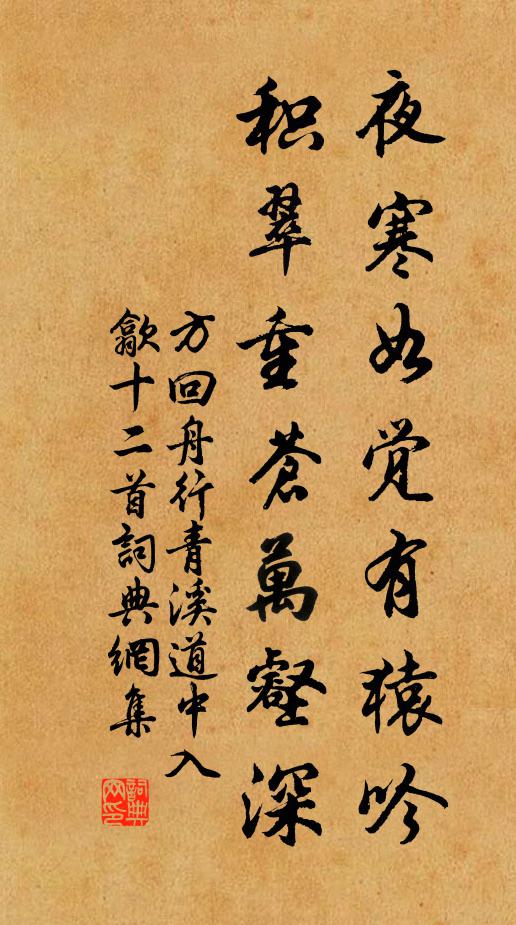 夜寒如觉有猿吟
积翠重苍萬壑深
方回舟行青溪道中入
歙十二首詞典網集
詞典网印